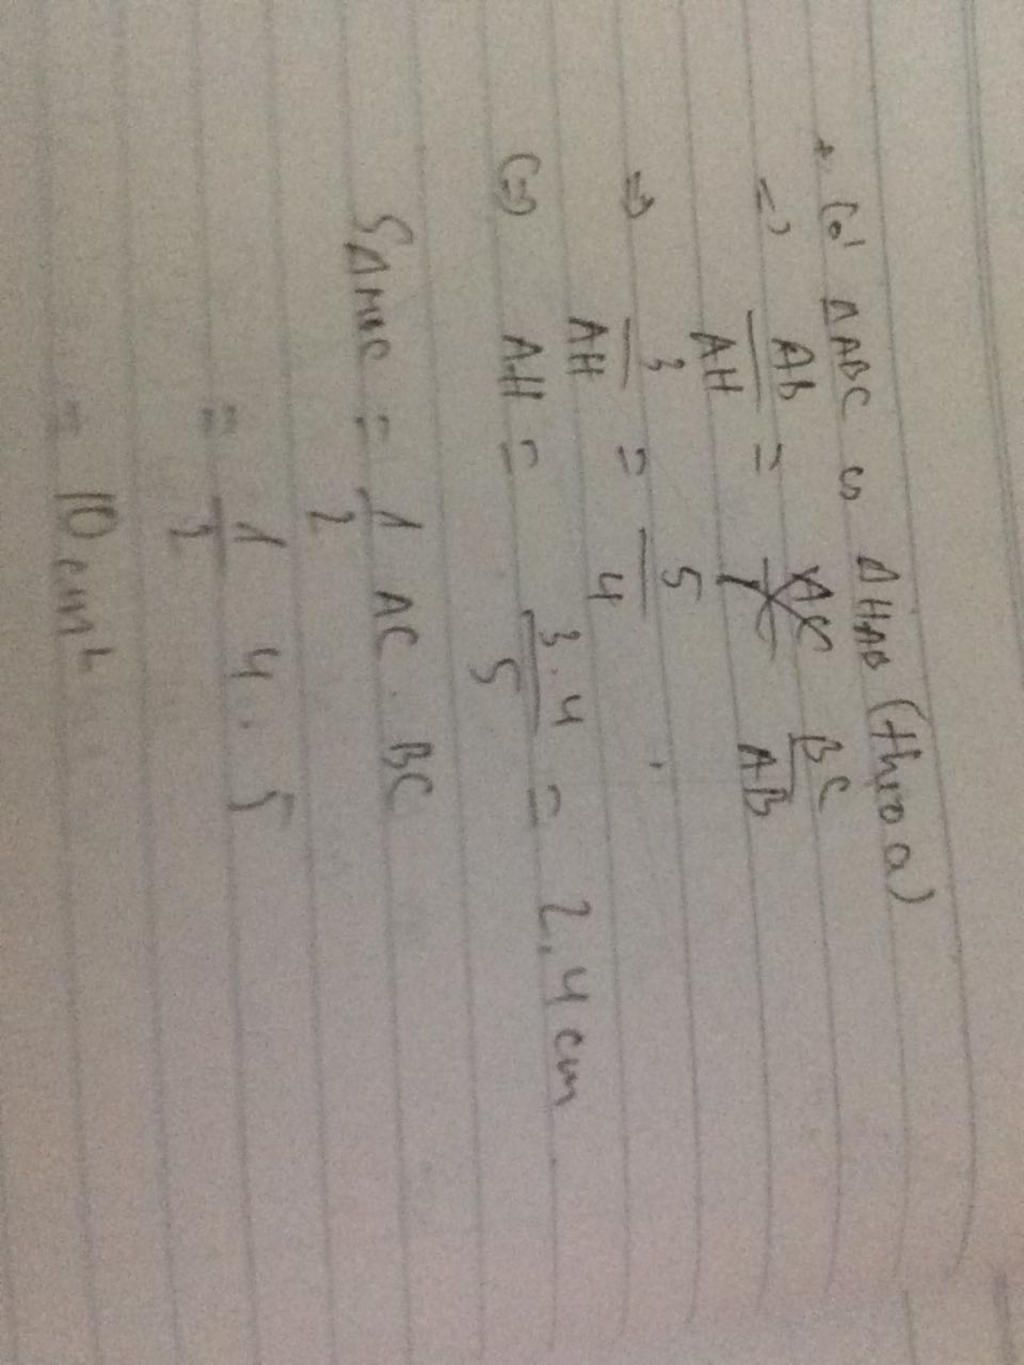 + Có ΔABC ∽ ΔHAB (theo a)
=> AB/AH = BC/AB
=> 3/AH = 5/4
(=) AH = 3.4/5 = 2,4cm
= 1/2 AC . BC
= 1/2 4 . 5
= 10 cm²